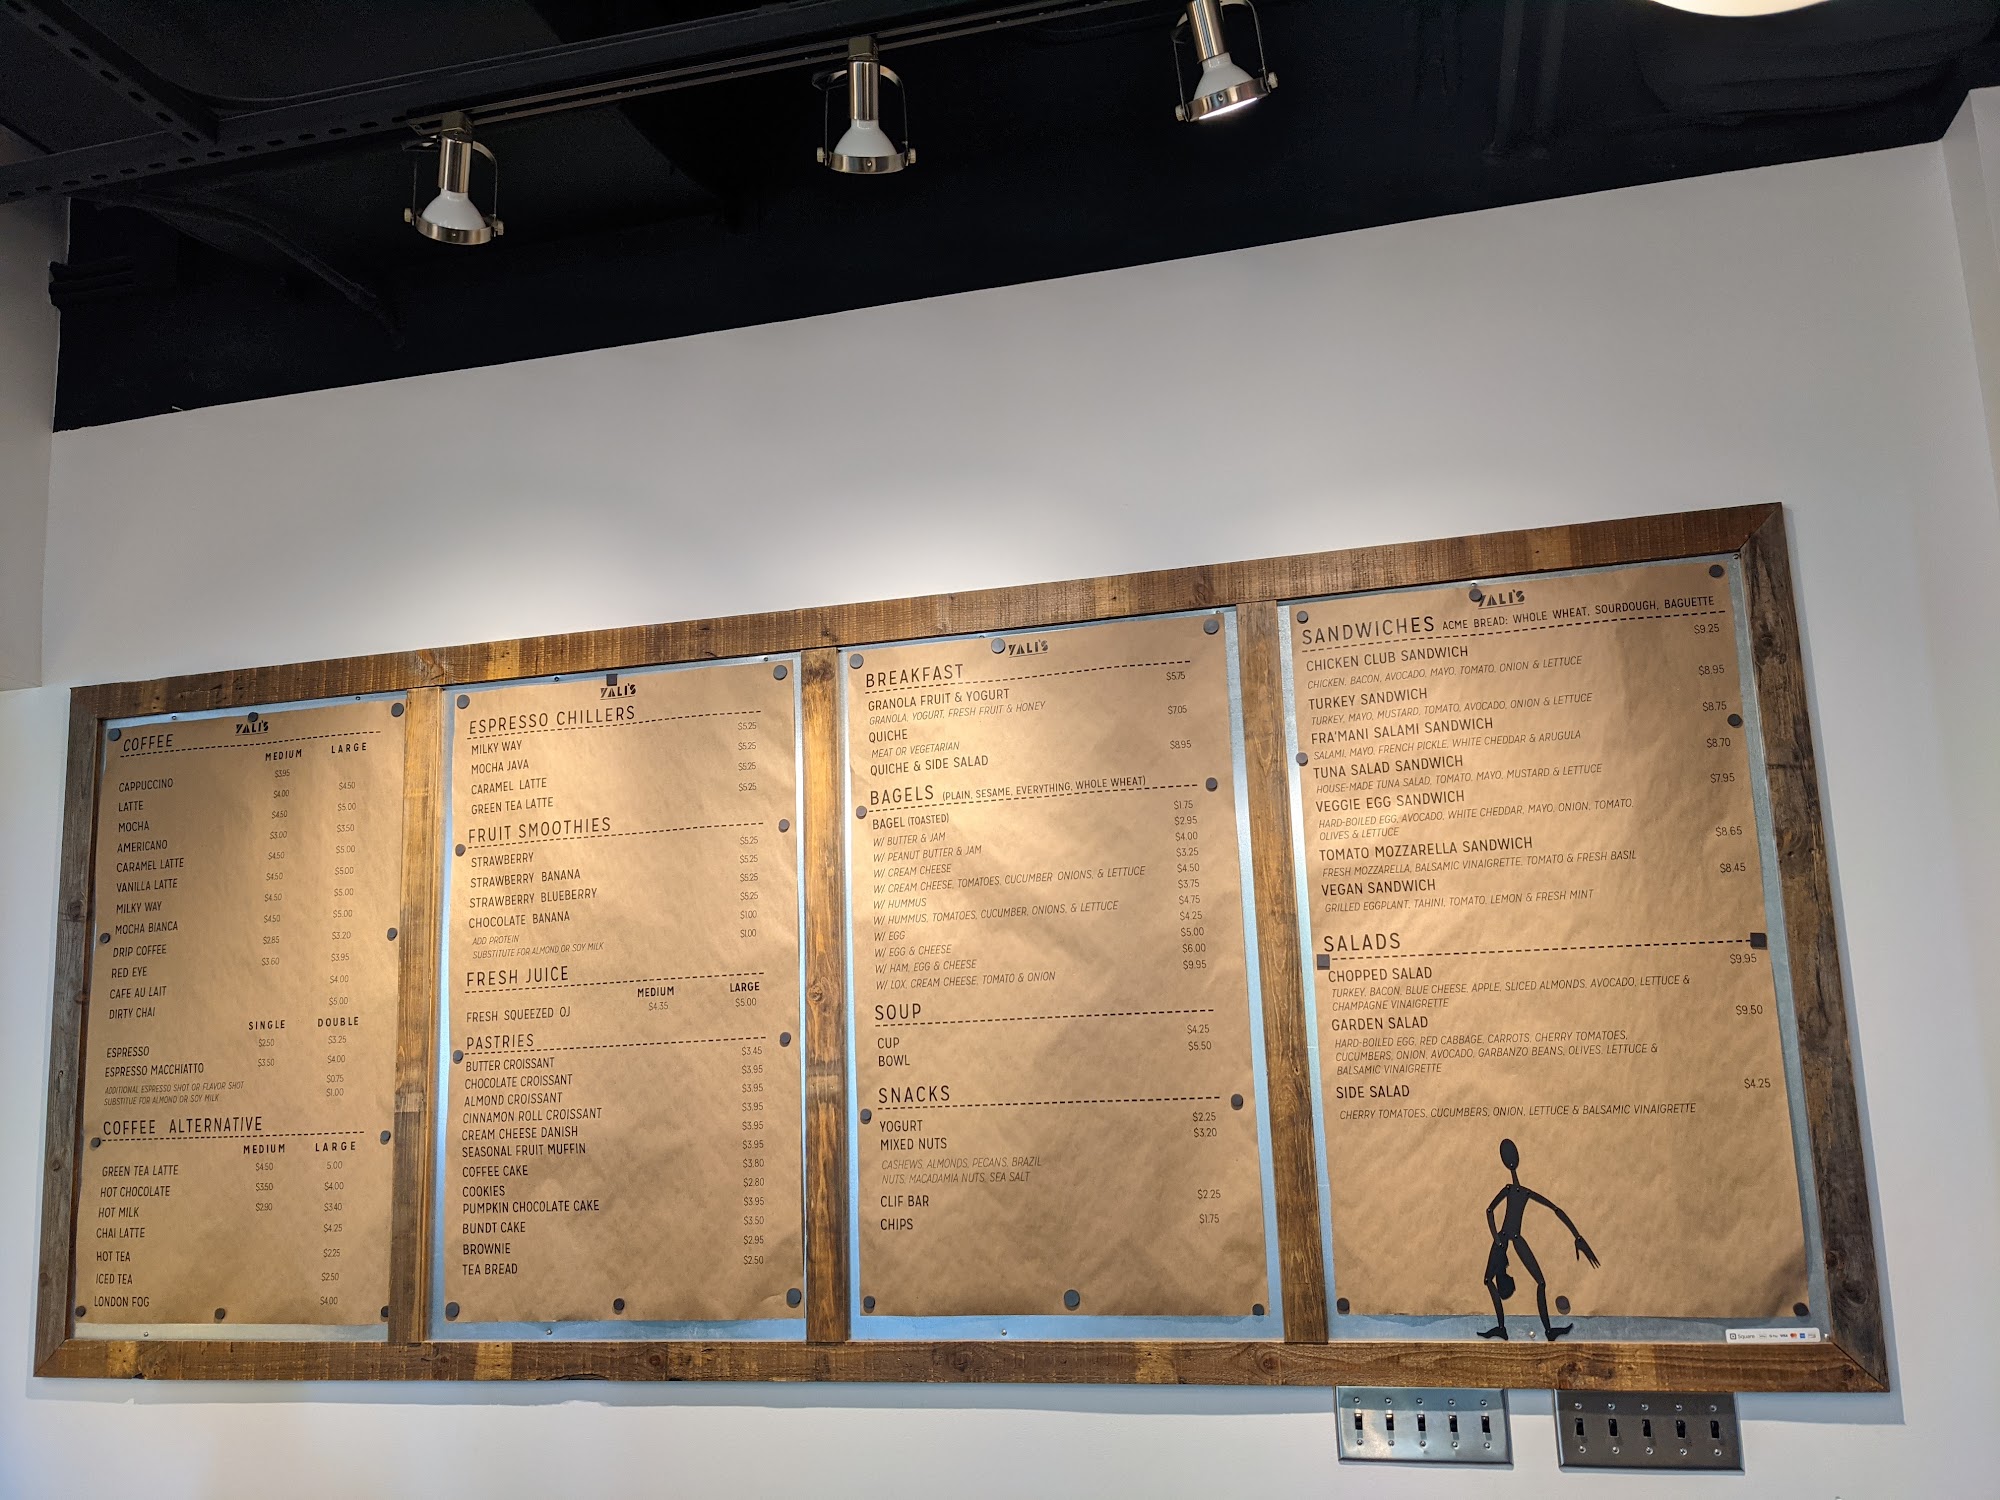 YALI'S
COFFEE
MEDIUM LARGE
CAPPUCCINO $3.95 $4.50
LATTE $4.00 $5.00
MOCHA $4.50 $5.00
AMERICANO $3.00 $3.50
CARAMEL LATTE $4.50 $5.00
VANILLA LATTE $4.50 $5.00
MILKY WAY $4.50 $5.00
MOCHA BIANCA $4.50 $5.00
DRIP COFFEE $2.85 $3.20
RED EYE $3.60 $3.95
CAFE AU LAIT $4.00
DIRTY CHAI $5.00
SINGLE DOUBLE
ESPRESSO $2.50 $3.25
ESPRESSO MACCHIATO $3.50 $4.00
ADDITIONAL ESPRESSO SHOT OR FLAVOR SHOT $0.75
SUBSTITUE FOR ALMOND OR SOY MILK $1.00
COFFEE ALTERNATIVE
MEDIUM LARGE
GREEN TEA LATTE $4.50 5.00
HOT CHOCOLATE $3.50 $4.00
HOT MILK $2.90 $3.40
CHAI LATTE $4.25
HOT TEA $2.25
ICED TEA $2.50
LONDON FOG $4.00
YALI'S
ESPRESSO CHILLERS
MILKY WAY $5.25
MOCHA JAVA $5.25
CARAMEL LATTE $5.25
GREEN TEA LATTE $5.25
FRUIT SMOOTHIES
STRAWBERRY $5.25
STRAWBERRY BANANA $5.25
STRAWBERRY BLUEBERRY $5.25
CHOCOLATE BANANA $5.25
ADD PROTEIN $1.00
SUBSTITUTE FOR ALMOND OR SOY MILK $1.00
FRESH JUICE
MEDIUM LARGE
FRESH SQUEEZED OJ $4.35 $5.00
PASTRIES
BUTTER CROISSANT $3.45
CHOCOLATE CROISSANT $3.95
ALMOND CROISSANT $3.95
CINNAMON ROLL CROISSANT $3.95
CREAM CHEESE DANISH $3.95
SEASONAL FRUIT MUFFIN $3.95
COFFEE CAKE $3.80
COOKIES $2.80
PUMPKIN CHOCOLATE CAKE $3.95
BUNDT CAKE $3.50
BROWNIE $2.95
TEA BREAD $2.50
YALI'S
BREAKFAST
GRANOLA FRUIT & YOGURT $5.75
GRANOLA, YOGURT, FRESH FRUIT & HONEY
QUICHE $7.05
MEAT OR VEGETARIAN
QUICHE & SIDE SALAD $8.95
BAGELS (PLAIN, SESAME, EVERYTHING, WHOLE WHEAT)
BAGEL (TOASTED) $1.75
W/ BUTTER & JAM $2.95
W/ PEANUT BUTTER & JAM $4.00
W/ CREAM CHEESE $3.25
W/ CREAM CHEESE, TOMATOES, CUCUMBER ONIONS, & LETTUCE $4.50
W/ HUMMUS $3.75
W/ HUMMUS, TOMATOES, CUCUMBER, ONIONS, & LETTUCE $4.75
W/ EGG $4.25
W/ EGG & CHEESE $5.00
W/ HAM, EGG & CHEESE $6.00
W/ LOX, CREAM CHEESE, TOMATO & ONION $9.95
SOUP
CUP $4.25
BOWL $5.50
SNACKS
YOGURT $2.25
MIXED NUTS $3.20
CASHEWS, ALMONDS, PECANS, BRAZIL
NUTS, MACADAMIA NUTS, SEA SALT
CLIF BAR $2.25
CHIPS $1.75
YALI'S
SANDWICHES ACME BREAD: WHOLE WHEAT, SOURDOUGH, BAGUETTE
CHICKEN CLUB SANDWICH $9.25
CHICKEN, BACON, AVOCADO, MAYO, TOMATO, ONION & LETTUCE
TURKEY SANDWICH $8.95
TURKEY, MAYO, MUSTARD, TOMATO, AVOCADO, ONION & LETTUCE
FRA'MANI SALAMI SANDWICH $8.75
SALAMI, MAYO, FRENCH PICKLE, WHITE CHEDDAR & ARUGULA
TUNA SALAD SANDWICH $8.70
HOUSE-MADE TUNA SALAD, TOMATO, MAYO, MUSTARD & LETTUCE
VEGGIE EGG SANDWICH $7.95
HARD-BOILED EGG, AVOCADO, WHITE CHEDDAR, MAYO, ONION, TOMATO,
OLIVES & LETTUCE
TOMATO MOZZARELLA SANDWICH $8.65
FRESH MOZZARELLA, BALSAMIC VINAIGRETTE, TOMATO & FRESH BASIL
VEGAN SANDWICH $8.45
GRILLED EGGPLANT, TAHINI, TOMATO, LEMON & FRESH MINT
SALADS
CHOPPED SALAD $9.95
TURKEY, BACON, BLUE CHEESE, APPLE, SLICED ALMONDS, AVOCADO, LETTUCE &
CHAMPAGNE VINAIGRETTE
GARDEN SALAD $9.50
HARD-BOILED EGG, RED CABBAGE, CARROTS, CHERRY TOMATOES,
CUCUMBERS, ONION, AVOCADO, GARBANZO BEANS, OLIVES, LETTUCE &
BALSAMIC VINAIGRETTE
SIDE SALAD $4.25
CHERRY TOMATOES, CUCUMBERS, ONION, LETTUCE & BALSAMIC VINAIGRETTE
Square VISA